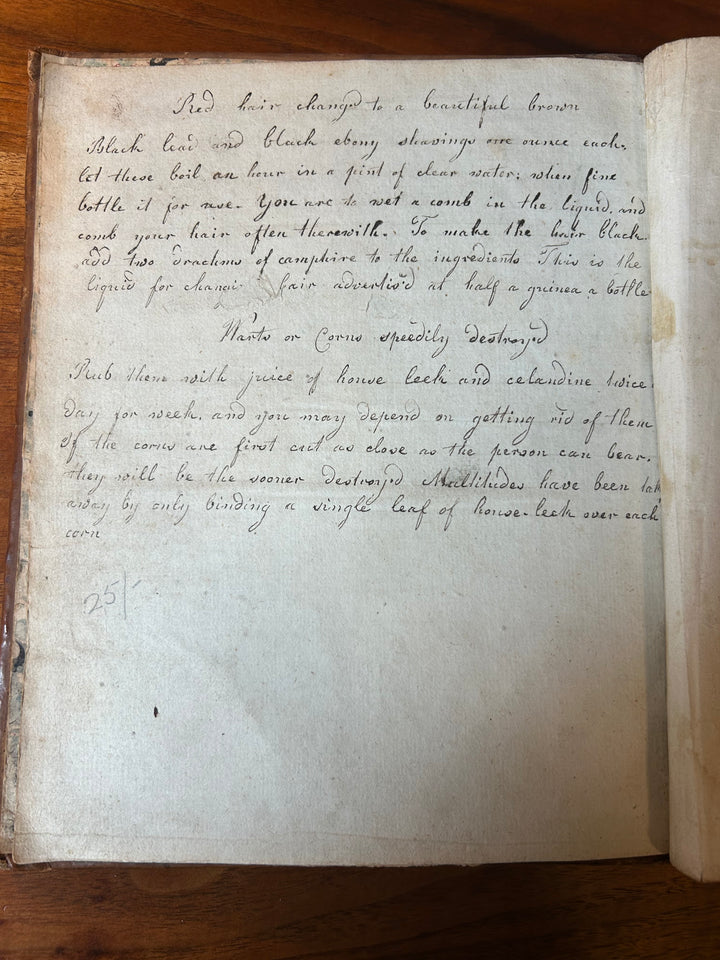 Red hair chang'd to a beautiful brown
Black lead and black ebony shavings one ounce each,
let these boil an hour in a pint of clear water; when fine
bottle it for use. You are to wet a comb in the liquid, and
comb your hair often therewith. To make the hair black
add two drachms of camphire to the ingredients This is the
liquid for hair advertis'd at half a guinea a bottle
Warts or Corns speedily destroy'd
Rub them with juice of house leek and celandine twice
day for week, and you may depend on getting rid of them
If the corns are first cut as close as the person can bear.
they will be the sooner destroy'd Multitudes have been tak
away by only binding a single leaf of house-leek over each
corn
25/-